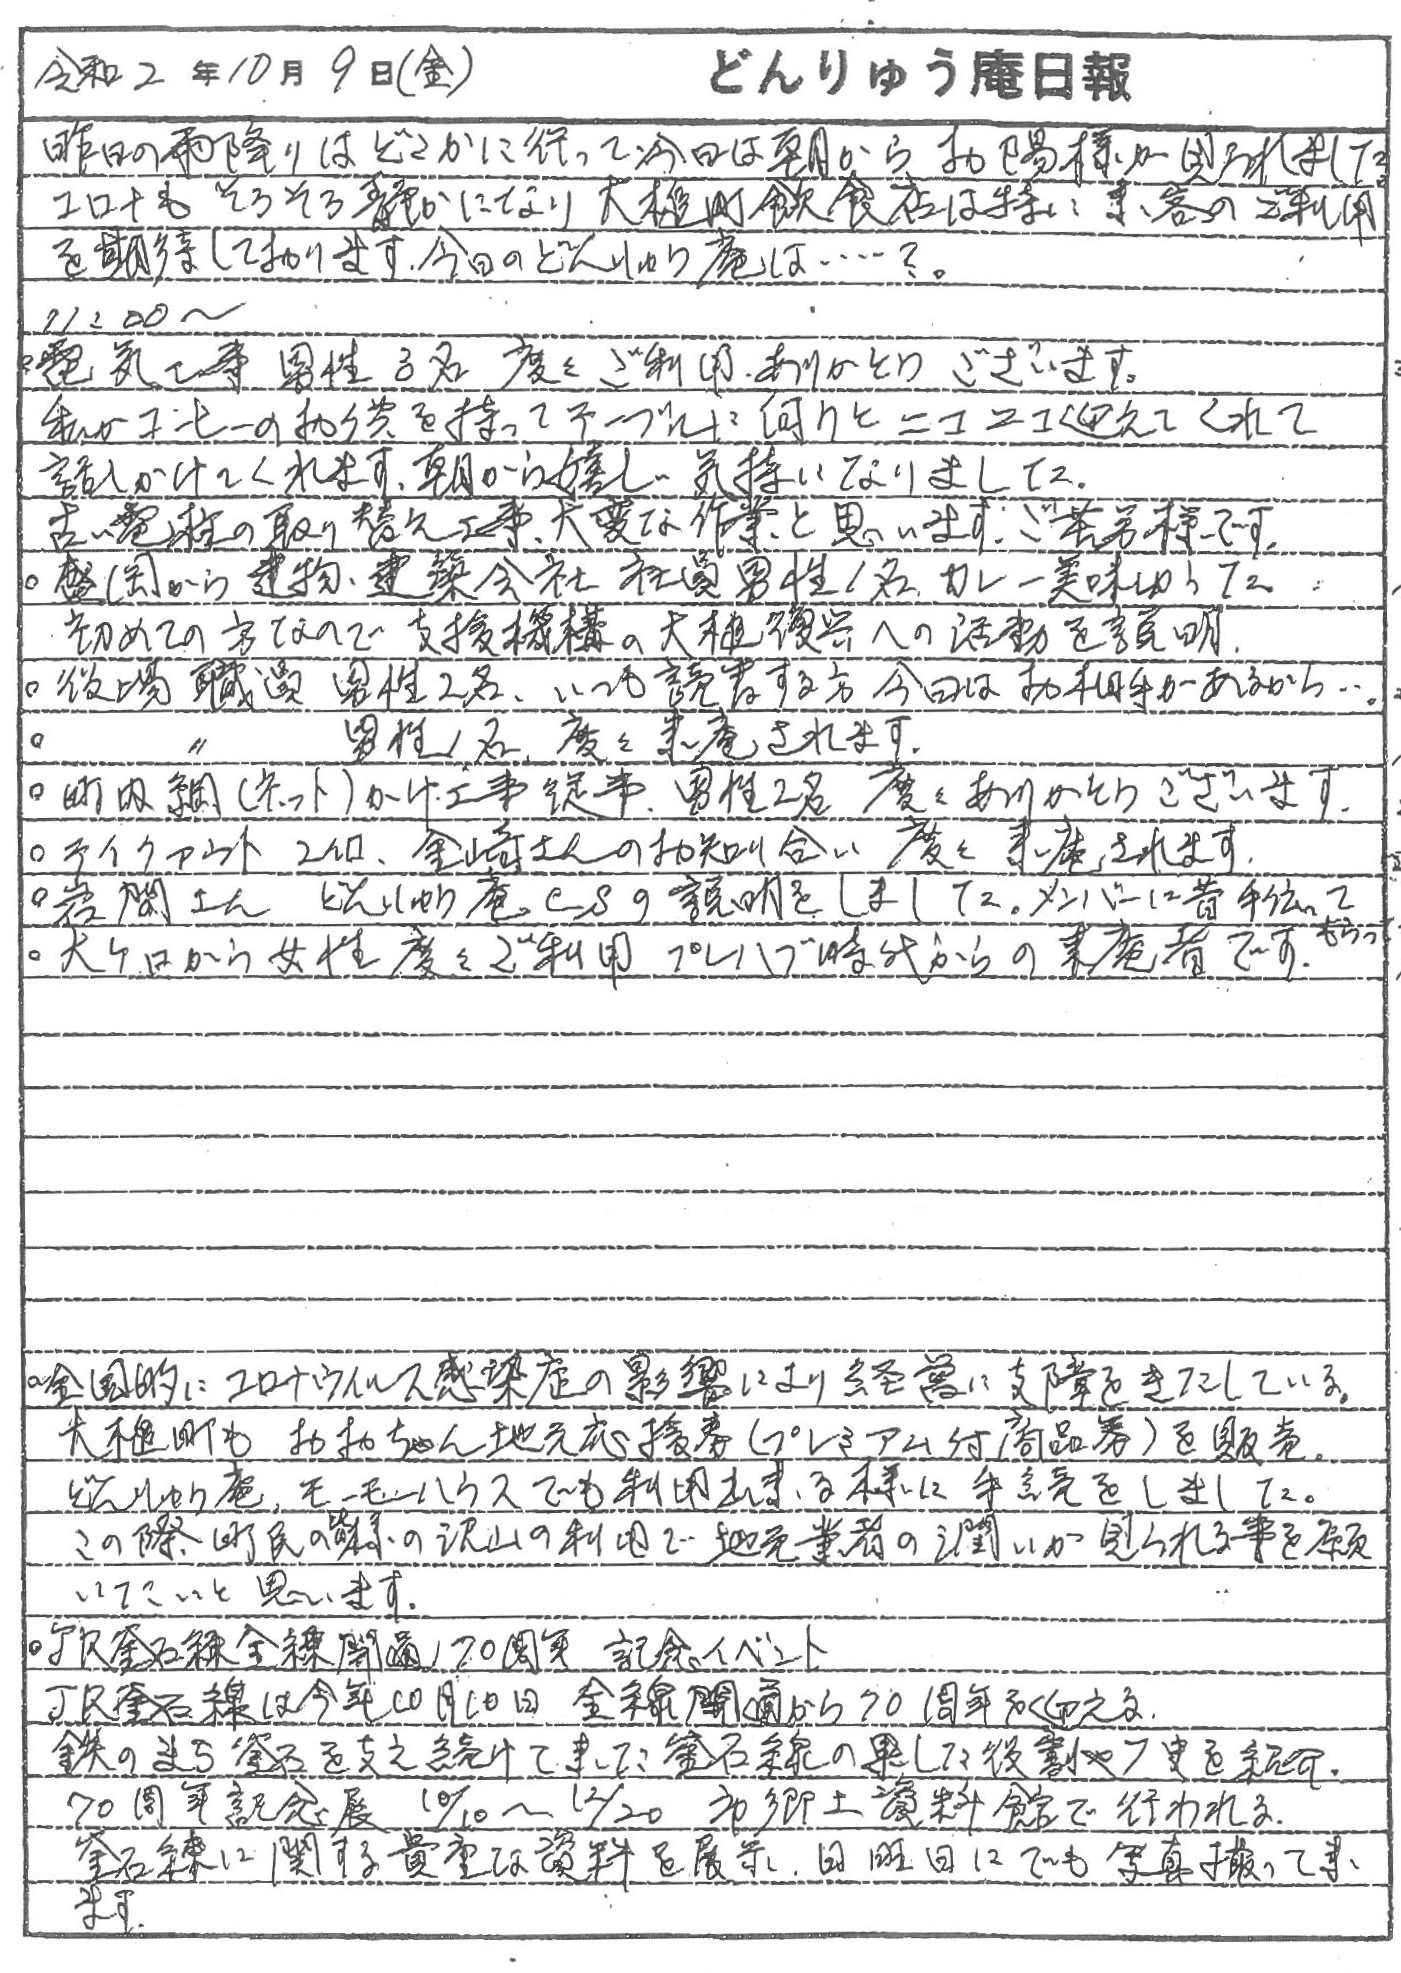 令和2年10月9日(金) どんりゅう庵日報
昨日の雨降りはどこかに行って、今日は朝からお陽様が見られました
コロナもそろそろ静かになり大槌町飲食店は特に来客のご利用
を期待しております。今日のどんりゅう庵は……?。
11:00〜
○電気工事 男性3名 度々ご利用、ありがとうございます。
私がコーヒーのお代を持ってテーブルに伺うとニコニコ迎えてくれて
話しかけてくれます、朝から嬉しい気持になりました。
古い電柱の取り替え工事、大変な作業と思います。ご苦労様です。
○盛岡から建物、建築会社 社員男性1名、カレー美味しかった
初めての方なので支援機構の大槌復興への活動を説明、
○役場職員 男性2名、いつも読書する方今日はお相手があるから…。
○ 〃 男性1名、度々来庵されます。
○町内網(ネット)かけ工事従事、男性2名 度々ありがとうございます。
○テイクアウト 2ケ口、金崎さんのお知り合い 度々来庵されます。
○岩間さん どんりゅう庵。CSの説明をしました。メンバーに昔手伝って
もらっ
○大ケ口から女性度々ご利用 プレハブ時代からの来庵者です。
○全国的にコロナウイルス感染症の影響により経営に支障をきたしている。
大槌町も おおちゃん地元応援券(プレミアム付商品券)を販売。
どんりゅう庵、モーモーハウスでも利用出来る様に手続をしました。
この際、町民の皆様の沢山の利用で地元業者の潤いが見られる事を願
いたいと思います。
○JR釜石線全線開通70周年 記念イベント
JR釜石線は今年10月10日 全線開通から70周年を迎える。
鉄のまち釜石を支え続けて来た釜石線の果した役割や歴史を紹介。
70周年記念展 10/10〜12/20 市郷土資料館で行われる。
釜石線に関する貴重な資料を展示、日曜日にでも写真撮って来
ます。